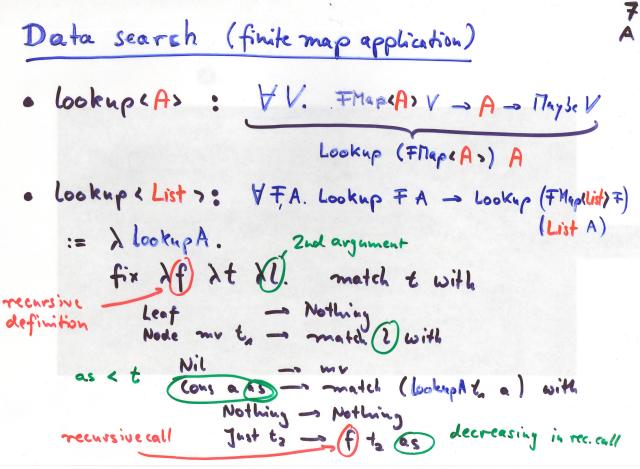 7
A
Data search (finite map application)
• lookup<A> : ∀ V. FMap<A> V → A → Maybe V
Lookup (FMap<A>) A
• lookup<List>: ∀ F,A. Lookup F A → Lookup (FMap<List> F)
(List A)
:= λ lookupA.
2nd argument
fix λf λt λl. match t with
recursive
definition
Leaf → Nothing
Node mv t₁ → match l with
Nil → mv
as < t
Cons a as → match (lookupA t₁ a) with
Nothing → Nothing
recursive call
Just t₂ → f t₂ as
decreasing in rec. call